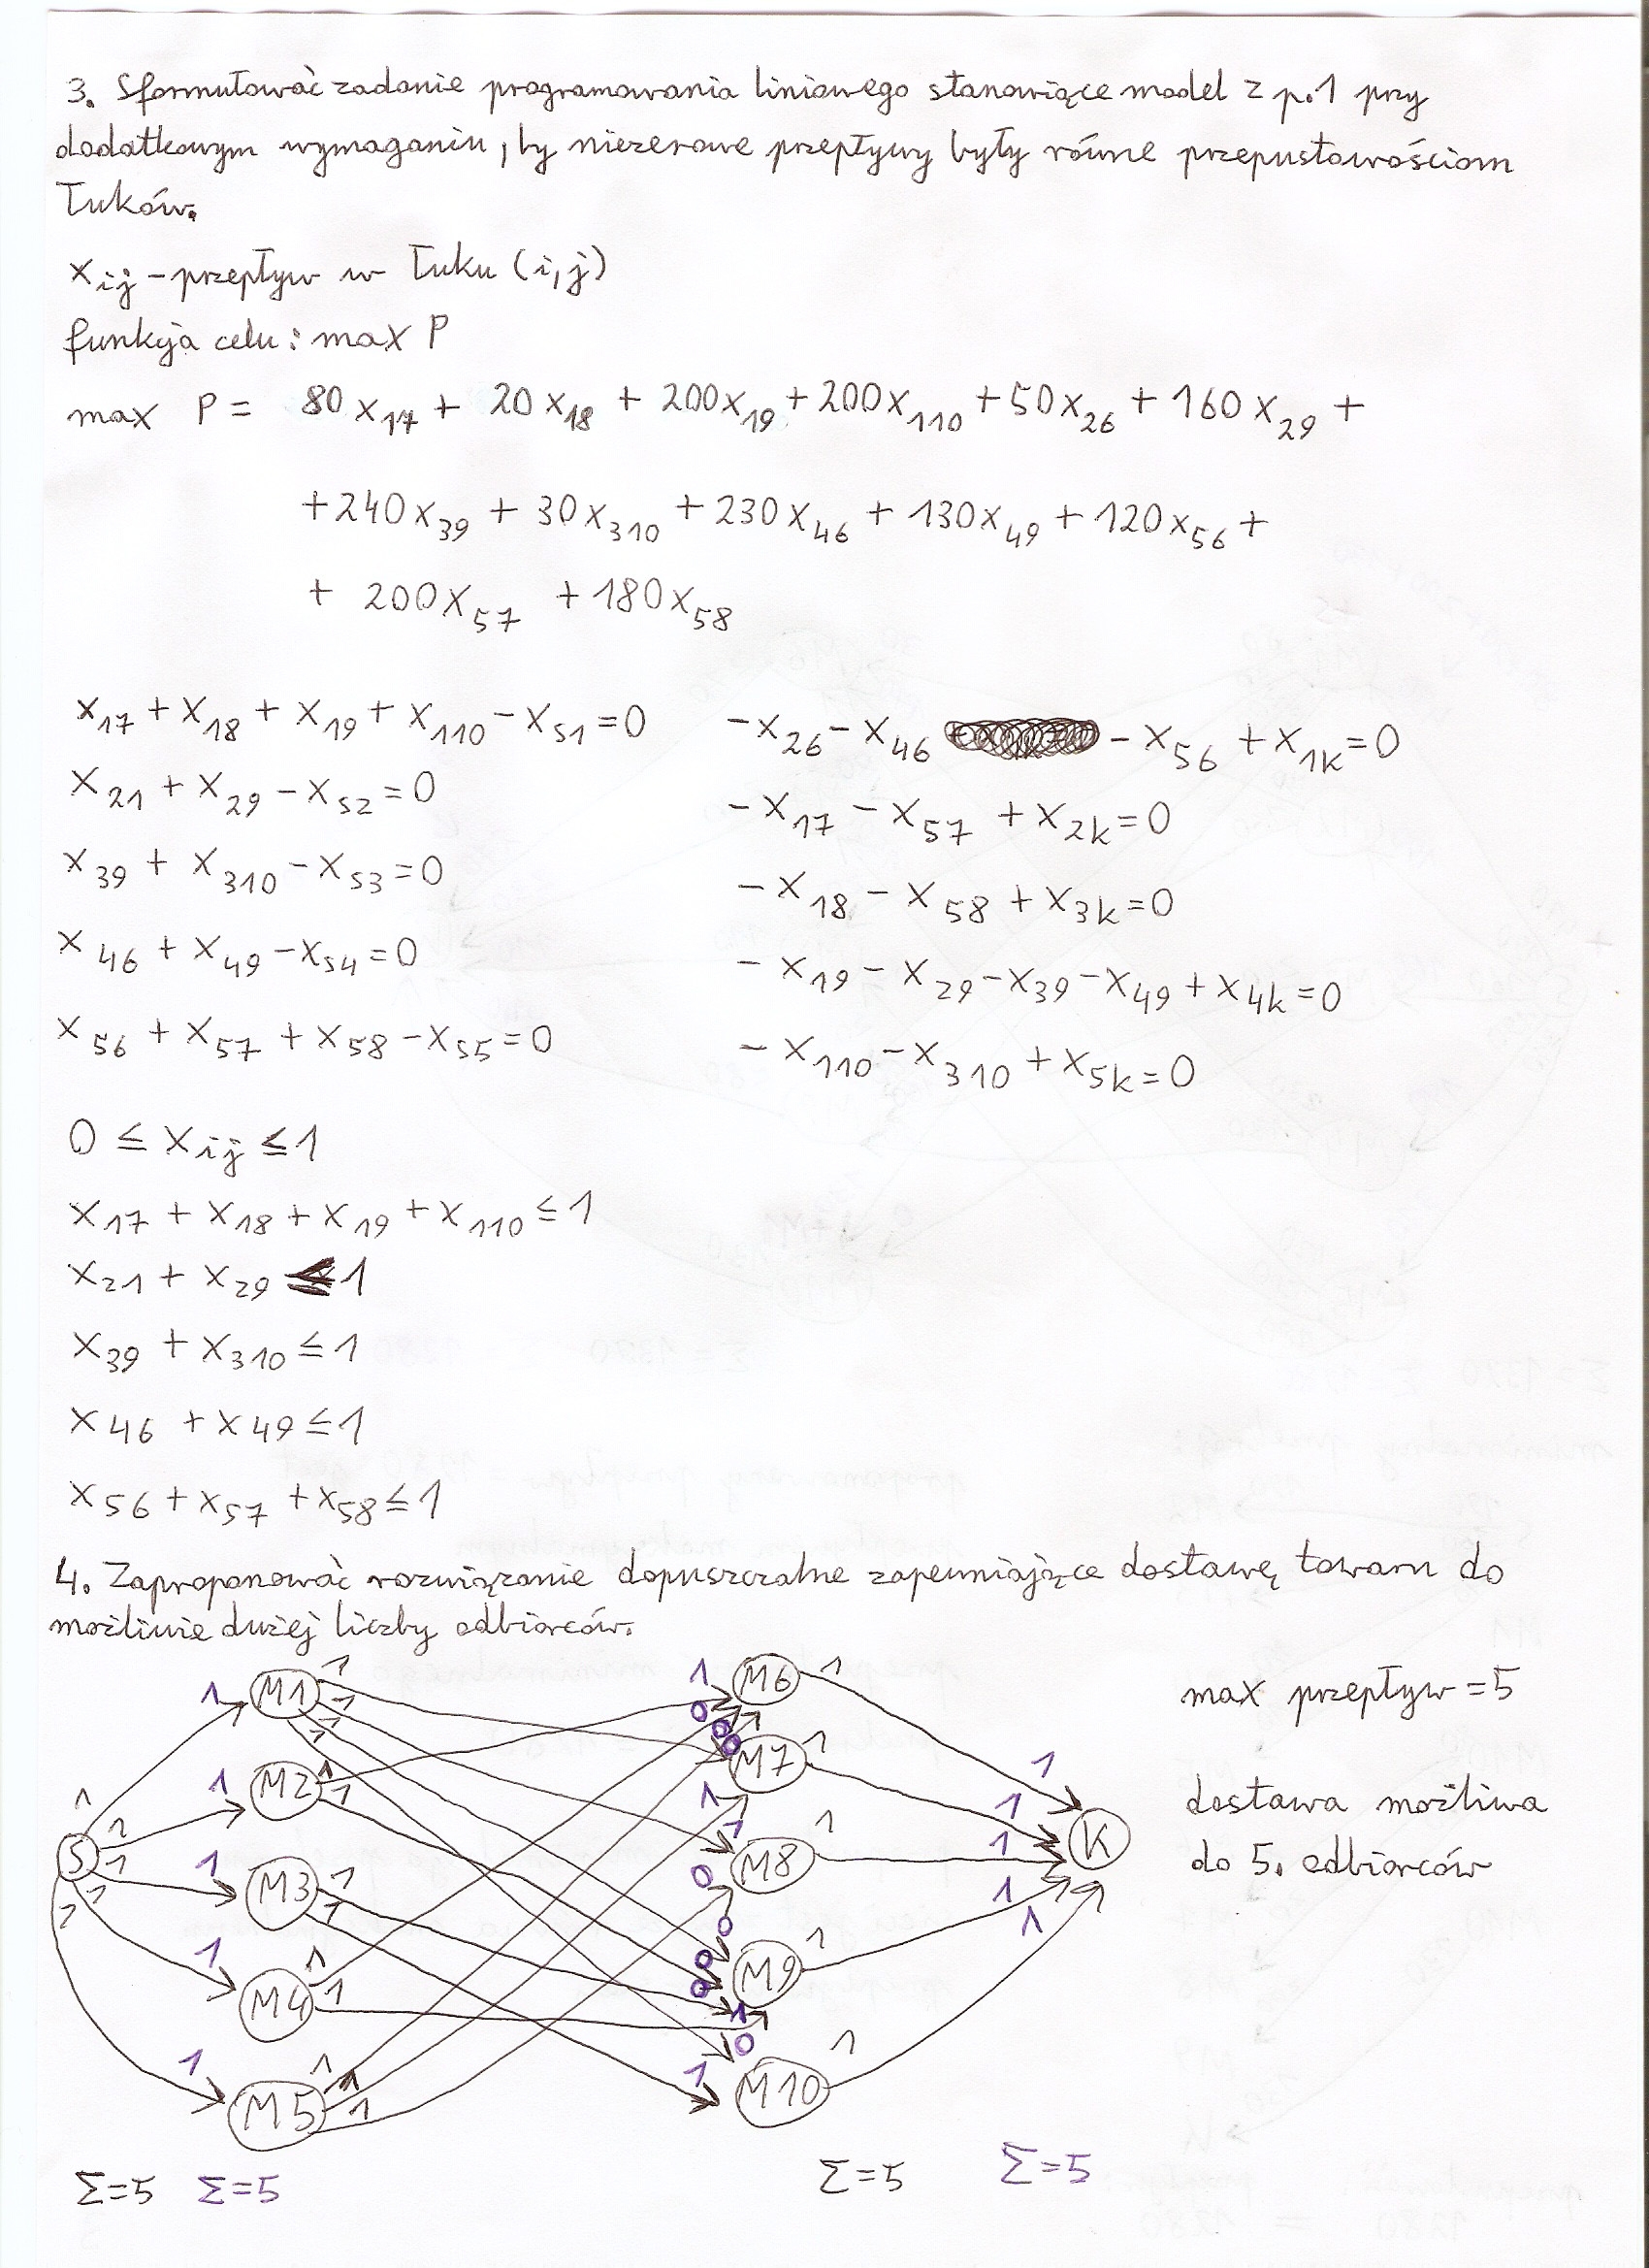 3. Sformułować zadanie programowania liniowego stanowiące model z p.1 przy
dodatkowym wymaganiu, by niezerowe przepływy były równe przepustowościom
łuków.
x_ij - przepływ w łuku (i,j)
funkcja celu: max P
max P = 80x_17 + 20x_18 + 200x_19 + 200x_110 + 50x_26 + 160x_29 +
+240x_39 + 30x_310 + 230x_46 + 130x_49 + 120x_56 +
+ 200x_57 + 180x_58
x_17 + x_18 + x_19 + x_110 - x_S1 = 0
x_21 + x_29 - x_S2 = 0
x_39 + x_310 - x_S3 = 0
x_46 + x_49 - x_S4 = 0
x_56 + x_57 + x_58 - x_S5 = 0
-x_26 - x_46 - x_56 + x_1k = 0
-x_17 - x_57 + x_2k = 0
-x_18 - x_58 + x_3k = 0
-x_19 - x_29 - x_39 - x_49 + x_4k = 0
-x_110 - x_310 + x_5k = 0
0 ≤ x_ij ≤ 1
x_17 + x_18 + x_19 + x_110 ≤ 1
x_21 + x_29 ≤ 1
x_39 + x_310 ≤ 1
x_46 + x_49 ≤ 1
x_56 + x_57 + x_58 ≤ 1
4. Zaproponować rozwiązanie dopuszczalne zapewniające dostawę towaru do
możliwie dużej liczby odbiorców.
S
M1
M2
M3
M4
M5
M6
M7
M8
M9
M10
K
max przepływ = 5
dostawa możliwa
do 5. odbiorców
Σ=5 Σ=5
Σ=5 Σ=5